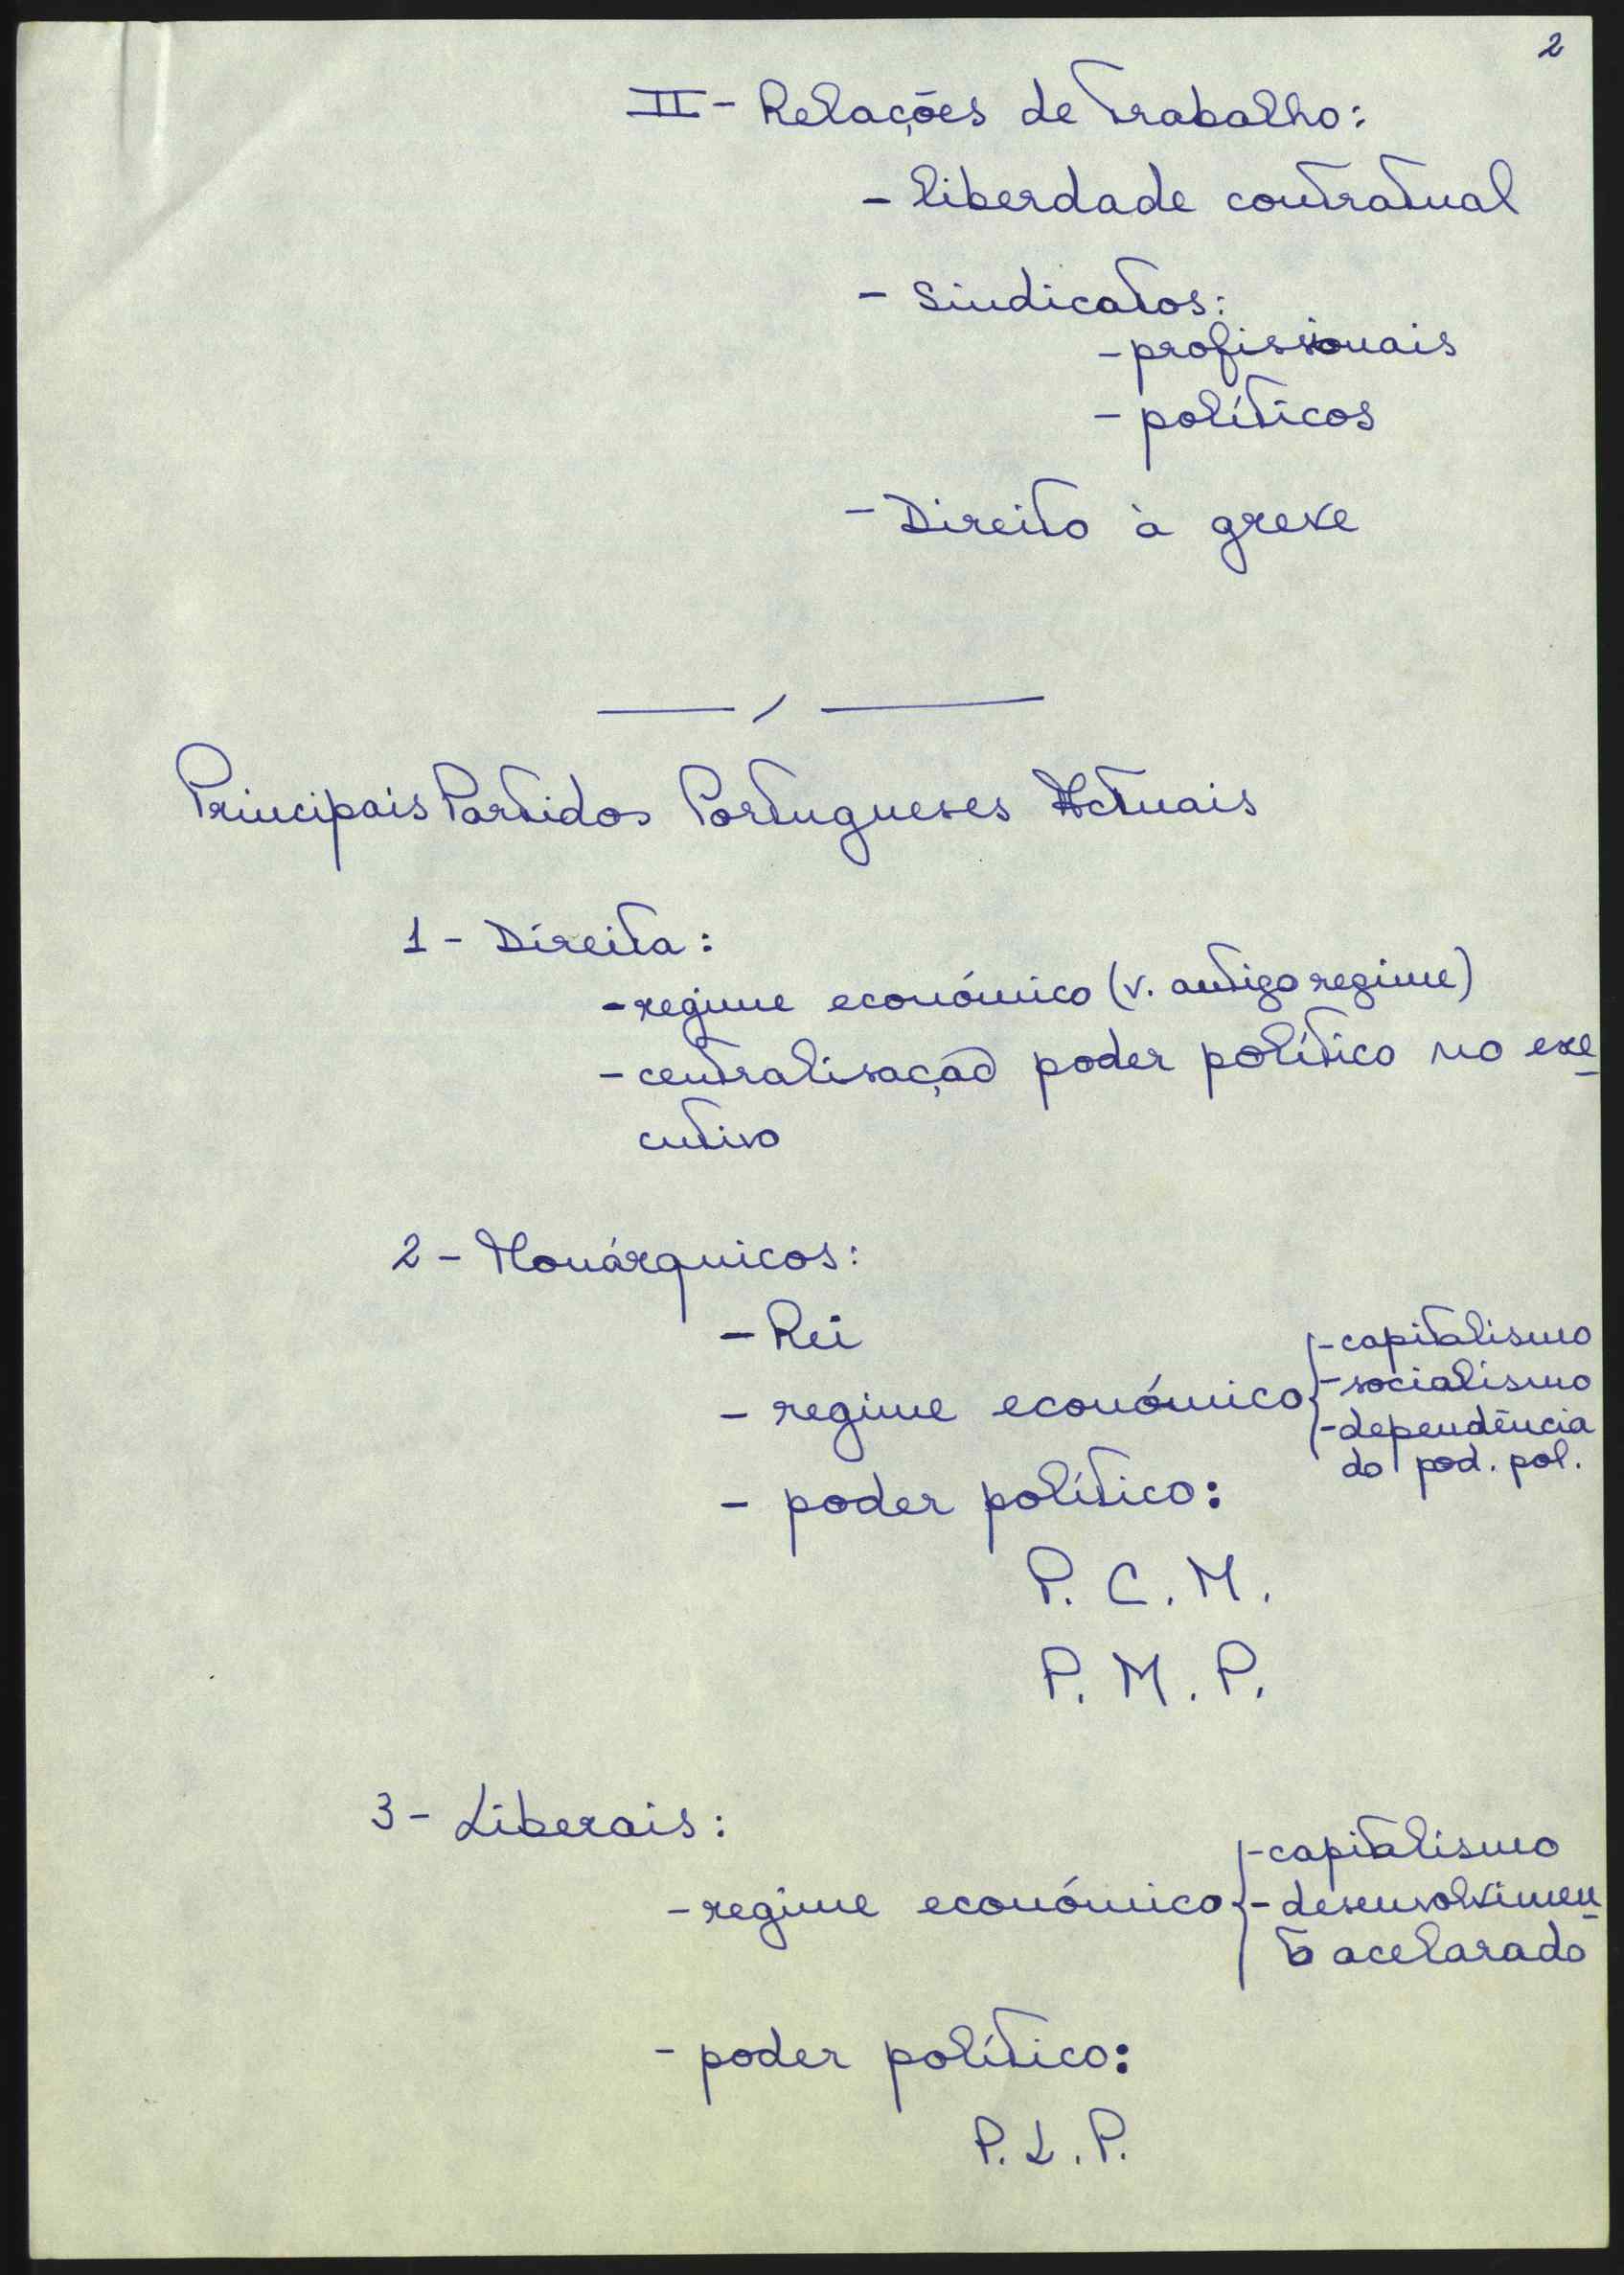 2
II - Relações de Trabalho:
- liberdade contratual
- Sindicatos:
- profissionais
- políticos
- Direito à greve
Principais Partidos Portugueses Actuais
1 - Direita:
- regime económico (v. antigo regime)
- centralisação poder político no exe
cutivo
2 - Monárquicos:
- Rei
- regime económico
- capitalismo
- socialismo
- dependência
do pod. pol.
- poder político:
P. C. M.
P. M. P.
3 - Liberais:
- regime económico
- capitalismo
- desenvolvimen
to acelarado
- poder político:
P. L. P.